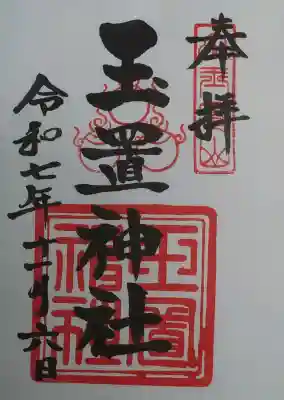 奉拝
玉置神社
令和七年十一月六日
玉置神社